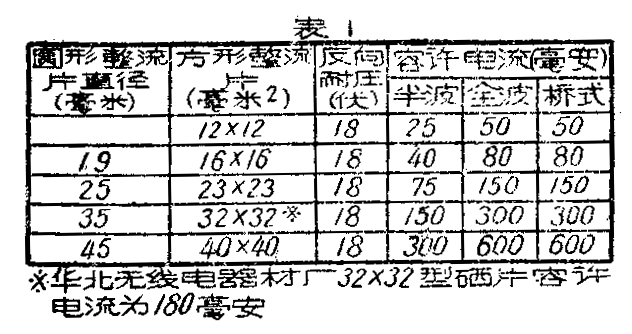 表 1
圆形整流片直径(毫米) 方形整流片(毫米2) 反向耐压(伏) 容许电流(毫安)
半波 全波 桥式
12×12 18 25 50 50
19 16×16 18 40 80 80
25 23×23 18 75 150 150
35 32×32※ 18 150 300 300
45 40×40 18 300 600 600
※华北无线电器材厂32×32型硒片容许
电流为180毫安